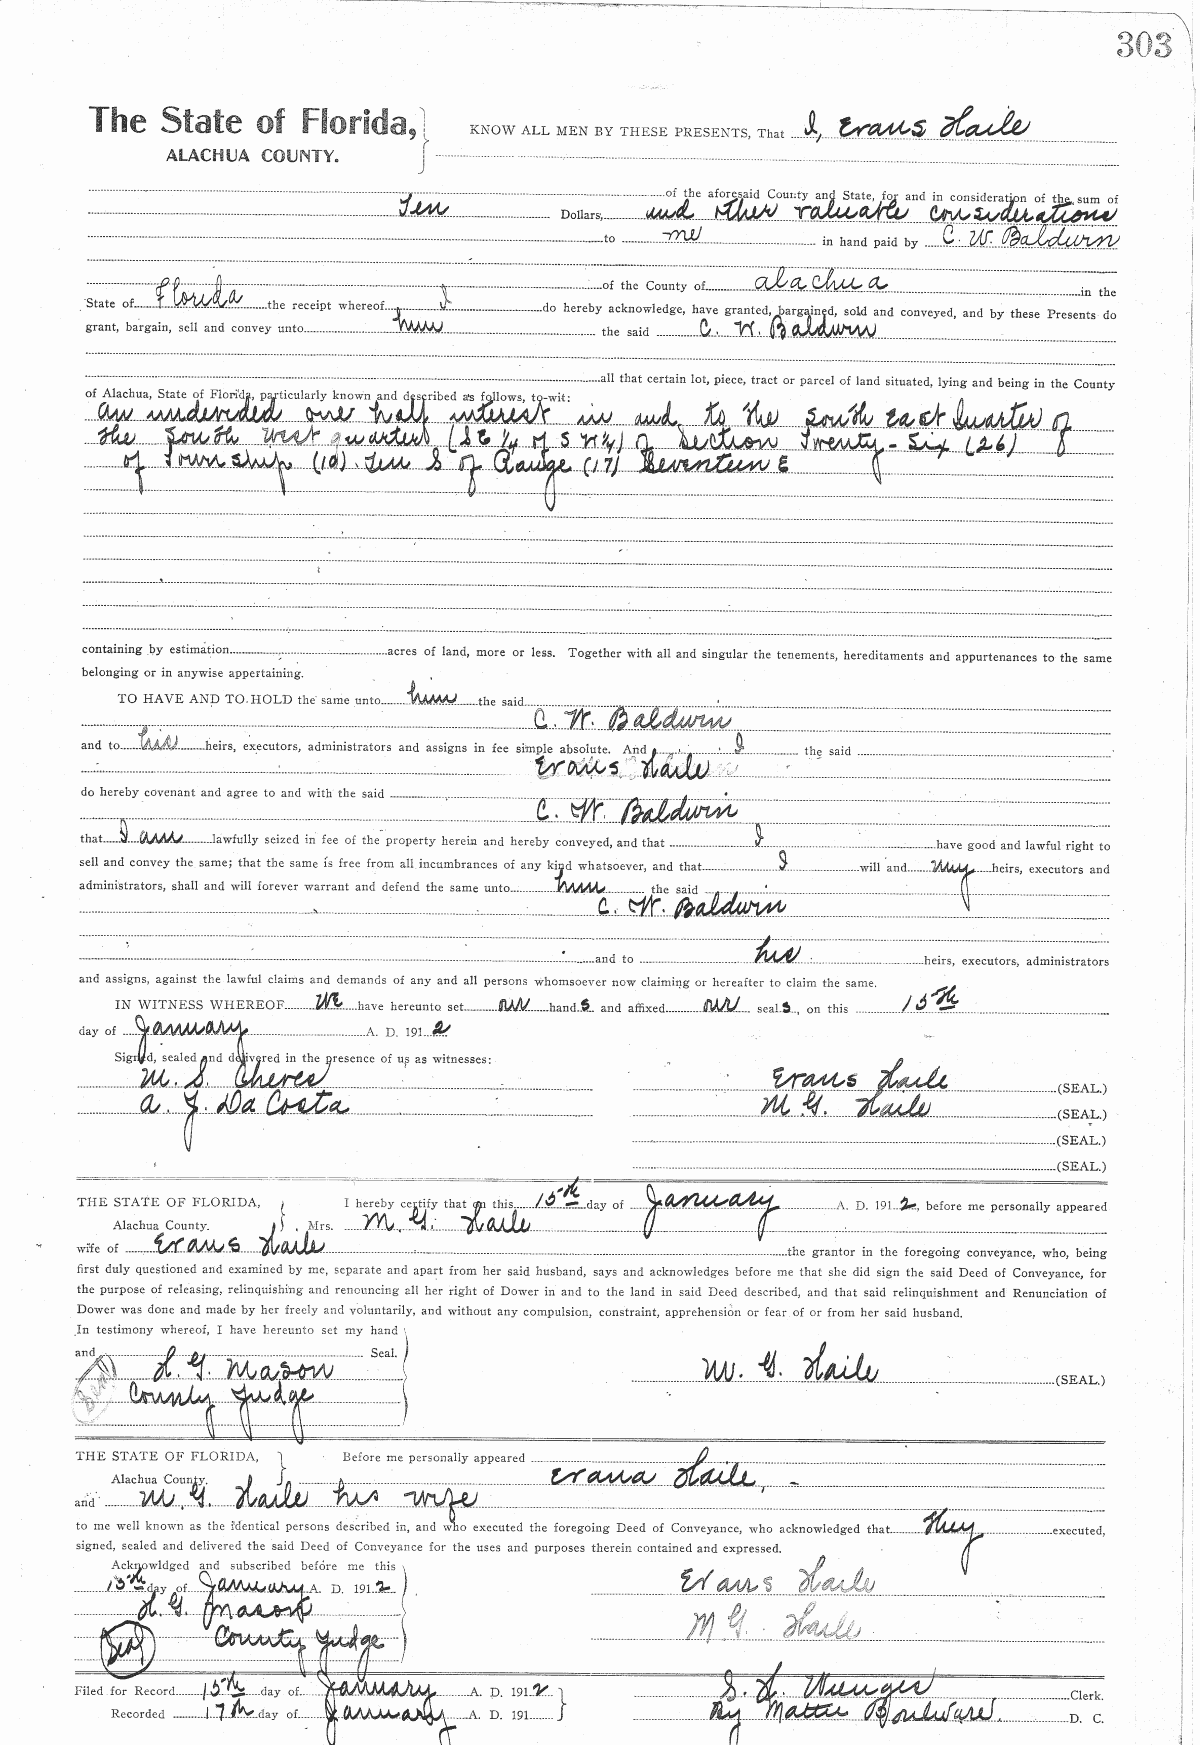 303
The State of Florida, KNOW ALL MEN BY THESE PRESENTS, That I, Evans Haile
ALACHUA COUNTY.
of the aforesaid County and State, for and in consideration of the sum of
Ten Dollars, and other valuable considerations
to me in hand paid by C. W. Baldwin
of the County of Alachua in the
State of Florida the receipt whereof I do hereby acknowledge, have granted, bargained, sold and conveyed, and by these Presents do
grant, bargain, sell and convey unto him the said C. W. Baldwin
all that certain lot, piece, tract or parcel of land situated, lying and being in the County
of Alachua, State of Florida, particularly known and described as follows, to-wit:
an undevided one half interest in and to the South East Quarter of
the South West quarter (SE 1/4 of S W 1/4) of Section Twenty-Six (26)
of Township (10) Ten S of Range (17) Seventeen E
containing by estimation acres of land, more or less. Together with all and singular the tenements, hereditaments and appurtenances to the same
belonging or in anywise appertaining.
TO HAVE AND TO HOLD the same unto him the said
C. W. Baldwin
and to his heirs, executors, administrators and assigns in fee simple absolute. And I the said
Evans Haile
do hereby covenant and agree to and with the said
C. W. Baldwin
that I am lawfully seized in fee of the property herein and hereby conveyed, and that I have good and lawful right to
sell and convey the same; that the same is free from all incumbrances of any kind whatsoever, and that I will and my heirs, executors and
administrators, shall and will forever warrant and defend the same unto him the said
C. W. Baldwin
and to his heirs, executors, administrators
and assigns, against the lawful claims and demands of any and all persons whomsoever now claiming or hereafter to claim the same.
IN WITNESS WHEREOF We have hereunto set our hands and affixed our seals, on this 15th
day of January A. D. 1912
Signed, sealed and delivered in the presence of us as witnesses:
M. S. Cheves Evans Haile (SEAL.)
A. J. DaCosta M G. Haile (SEAL.)
(SEAL.)
(SEAL.)
THE STATE OF FLORIDA, I hereby certify that on this 15th day of January A. D. 1912, before me personally appeared
Alachua County. Mrs. M. G. Haile
wife of Evans Haile the grantor in the foregoing conveyance, who, being
first duly questioned and examined by me, separate and apart from her said husband, says and acknowledges before me that she did sign the said Deed of Conveyance, for
the purpose of releasing, relinquishing and renouncing all her right of Dower in and to the land in said Deed described, and that said relinquishment and Renunciation of
Dower was done and made by her freely and voluntarily, and without any compulsion, constraint, apprehension or fear of or from her said husband.
In testimony whereof, I have hereunto set my hand
and Seal.
H. G. Mason M. G. Haile (SEAL.)
(Seal) County Judge
THE STATE OF FLORIDA, Before me personally appeared
Alachua County. Evans Haile, -
and M. G. Haile his wife
to me well known as the identical persons described in, and who executed the foregoing Deed of Conveyance, who acknowledged that they executed,
signed, sealed and delivered the said Deed of Conveyance for the uses and purposes therein contained and expressed.
Acknowldged and subscribed before me this
15th day of January A. D. 1912 Evans Haile
H. G. Mason M G. Haile
(Seal) County Judge
Filed for Record 15th day of January A. D. 1912 S. H. Wienges Clerk.
Recorded 17th day of January A. D. 191 By Mattie Boulware. D. C.